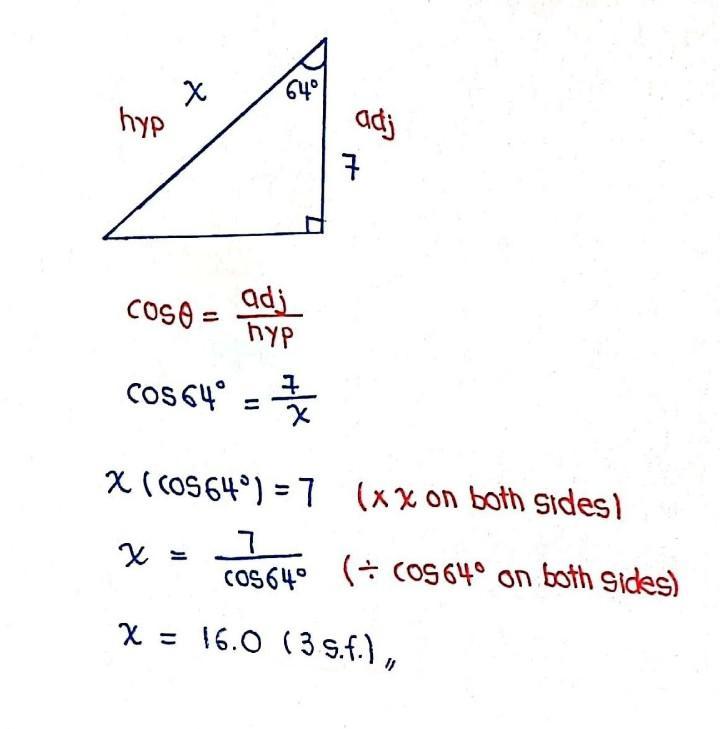 x
64°
hyp
adj
7
cosθ = adj/hyp
cos64° = 7/x
x (cos64°) = 7 (× x on both sides)
x = 7/cos64° (÷ cos64° on both sides)
x = 16.0 (3 s.f.)〃